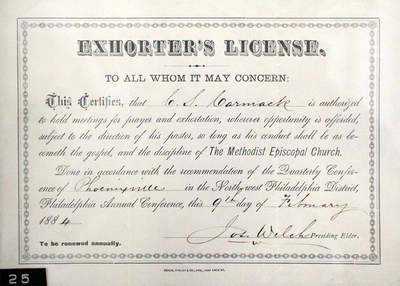 EXHORTER'S LICENSE.
TO ALL WHOM IT MAY CONCERN:
This Certifies, that C. S. Carmack is authorized
to hold meetings for prayer and exhortation, wherever opportunity is afforded,
subject to the direction of his pastor, so long as his conduct shall be as be-
cometh the gospel, and the discipline of The Methodist Episcopal Church.
Done in accordance with the recommendation of the Quarterly Confer-
ence of Phoenixville in the North-west Philadelphia District,
Philadelphia Annual Conference, this 9th day of February
1884
Jos. Welch Presiding Elder.
To be renewed annually.
25